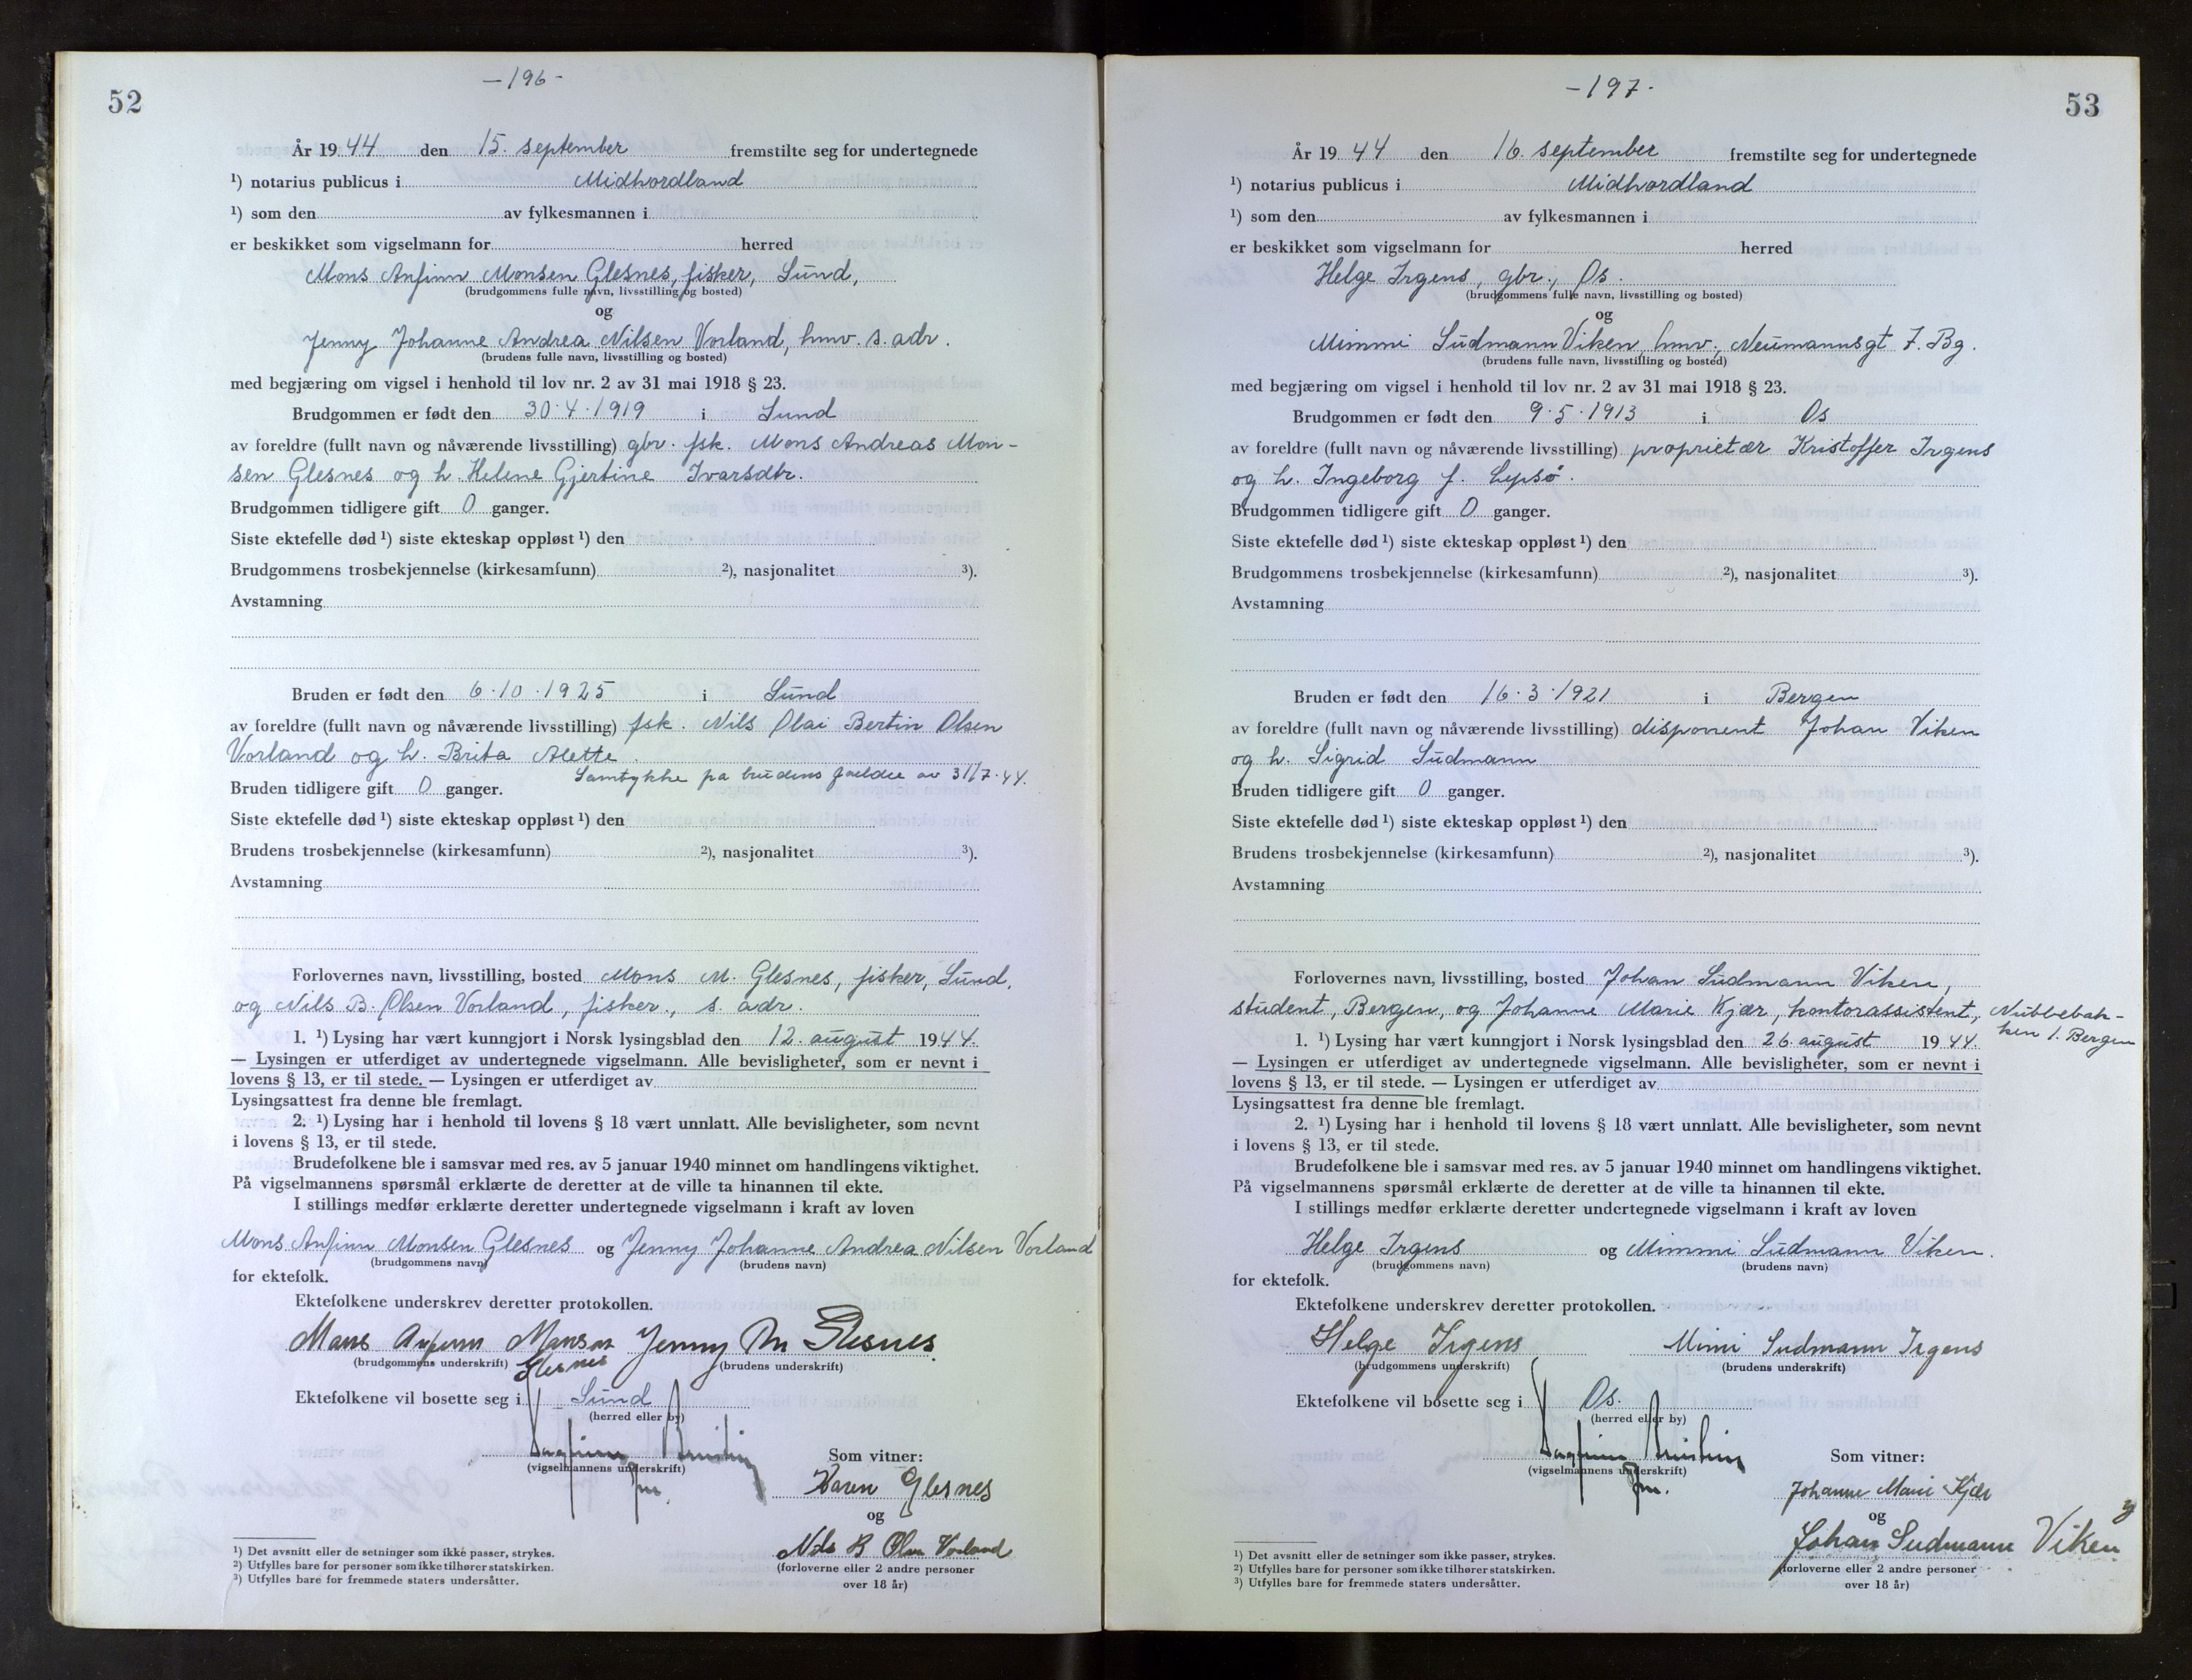 52
- 196 -
År 1944 den 15. september fremstilte seg for undertegnede
¹) notarius publicus i Midhordland
¹) som den av fylkesmannen i
er beskikket som vigselmann for herred
Mons Anfinn Monsen Glesnes, fisker, Sund,
(brudgommens fulle navn, livsstilling og bosted)
og
Jenny Johanne Andrea Nilsen Vorland, hmv. s. adr.
(brudens fulle navn, livsstilling og bosted)
med begjæring om vigsel i henhold til lov nr. 2 av 31 mai 1918 § 23.
Brudgommen er født den 30.4.1919 i Sund
av foreldre (fullt navn og nåværende livsstilling) gbr. fsk. Mons Andreas Mon-
sen Glesnes og h. Helene Gjertine Ivarsdtr.
Brudgommen tidligere gift 0 ganger.
Siste ektefelle død ¹) siste ekteskap oppløst ¹) den
Brudgommens trosbekjennelse (kirkesamfunn) ²), nasjonalitet ³).
Avstamning
Bruden er født den 6.10.1925 i Sund
av foreldre (fullt navn og nåværende livsstilling) fsk. Nils Olai Bertin Olsen
Vorland og h. Brita Alette.
Samtykke på brudens foreldre av 31/7.44.
Bruden tidligere gift 0 ganger.
Siste ektefelle død ¹) siste ekteskap oppløst ¹) den
Brudens trosbekjennelse (kirkesamfunn) ²), nasjonalitet ³).
Avstamning
Forlovernes navn, livsstilling, bosted Mons M. Glesnes, fisker, Sund,
og Nils B. Olsen Vorland, fisker, s. adr.
1. ¹) Lysing har vært kunngjort i Norsk lysingsblad den 12. august 1944.
— Lysingen er utferdiget av undertegnede vigselmann. Alle bevisligheter, som er nevnt i
lovens § 13, er til stede. — Lysingen er utferdiget av
Lysingsattest fra denne ble fremlagt.
2. ¹) Lysing har i henhold til lovens § 18 vært unnlatt. Alle bevisligheter, som nevnt
i lovens § 13, er til stede.
Brudefolkene ble i samsvar med res. av 5 januar 1940 minnet om handlingens viktighet.
På vigselmannens spørsmål erklærte de deretter at de ville ta hinannen til ekte.
I stillings medfør erklærte deretter undertegnede vigselmann i kraft av loven
Mons Anfinn Monsen Glesnes og Jenny Johanne Andrea Nilsen Vorland
(brudgommens navn) (brudens navn)
for ektefolk.
Ektefolkene underskrev deretter protokollen.
Mons Anfinn Monsen Jenny M Glesnes
Glesnes
(brudgommens underskrift) (brudens underskrift)
Ektefolkene vil bosette seg i Sund
(herred eller by)
(vigselmannens underskrift)
Som vitner:
Karen Glesnes
og
Nils B Olsen Vorland
(forloverne eller 2 andre personer
over 18 år)
¹) Det avsnitt eller de setninger som ikke passer, strykes.
²) Utfylles bare for personer som ikke tilhører statskirken.
³) Utfylles bare for fremmede staters undersåtter.
53
- 197 -
År 1944 den 16. september fremstilte seg for undertegnede
¹) notarius publicus i Midhordland
¹) som den av fylkesmannen i
er beskikket som vigselmann for herred
Helge Irgens, gbr., Os.
(brudgommens fulle navn, livsstilling og bosted)
og
Mimmi Sudmann Viken, hmv., Neumannsgt 7. Bg.
(brudens fulle navn, livsstilling og bosted)
med begjæring om vigsel i henhold til lov nr. 2 av 31 mai 1918 § 23.
Brudgommen er født den 9.5.1913 i Os
av foreldre (fullt navn og nåværende livsstilling) proprietær Kristoffer Irgens
og h. Ingeborg f. Lepsø.
Brudgommen tidligere gift 0 ganger.
Siste ektefelle død ¹) siste ekteskap oppløst ¹) den
Brudgommens trosbekjennelse (kirkesamfunn) ²), nasjonalitet ³).
Avstamning
Bruden er født den 16.3.1921 i Bergen
av foreldre (fullt navn og nåværende livsstilling) disponent Johan Viken
og h. Sigrid Sudmann
Bruden tidligere gift 0 ganger.
Siste ektefelle død ¹) siste ekteskap oppløst ¹) den
Brudens trosbekjennelse (kirkesamfunn) ²), nasjonalitet ³).
Avstamning
Forlovernes navn, livsstilling, bosted Johan Sudmann Viken,
student, Bergen, og Johanne Marie Kjær, kontorassistent, Nubbebak-
ken 1. Bergen
1. ¹) Lysing har vært kunngjort i Norsk lysingsblad den 26. august 1944.
— Lysingen er utferdiget av undertegnede vigselmann. Alle bevisligheter, som er nevnt i
lovens § 13, er til stede. — Lysingen er utferdiget av
Lysingsattest fra denne ble fremlagt.
2. ¹) Lysing har i henhold til lovens § 18 vært unnlatt. Alle bevisligheter, som nevnt
i lovens § 13, er til stede.
Brudefolkene ble i samsvar med res. av 5 januar 1940 minnet om handlingens viktighet.
På vigselmannens spørsmål erklærte de deretter at de ville ta hinannen til ekte.
I stillings medfør erklærte deretter undertegnede vigselmann i kraft av loven
Helge Irgens og Mimmi Sudmann Viken.
(brudgommens navn) (brudens navn)
for ektefolk.
Ektefolkene underskrev deretter protokollen.
Helge Irgens Mimi Sudmann Irgens
(brudgommens underskrift) (brudens underskrift)
Ektefolkene vil bosette seg i Os.
(herred eller by)
(vigselmannens underskrift)
Som vitner:
Johanne Marie Kjær
og
Johan Sudmann Viken
(forloverne eller 2 andre personer
over 18 år)
¹) Det avsnitt eller de setninger som ikke passer, strykes.
²) Utfylles bare for personer som ikke tilhører statskirken.
³) Utfylles bare for fremmede staters undersåtter.